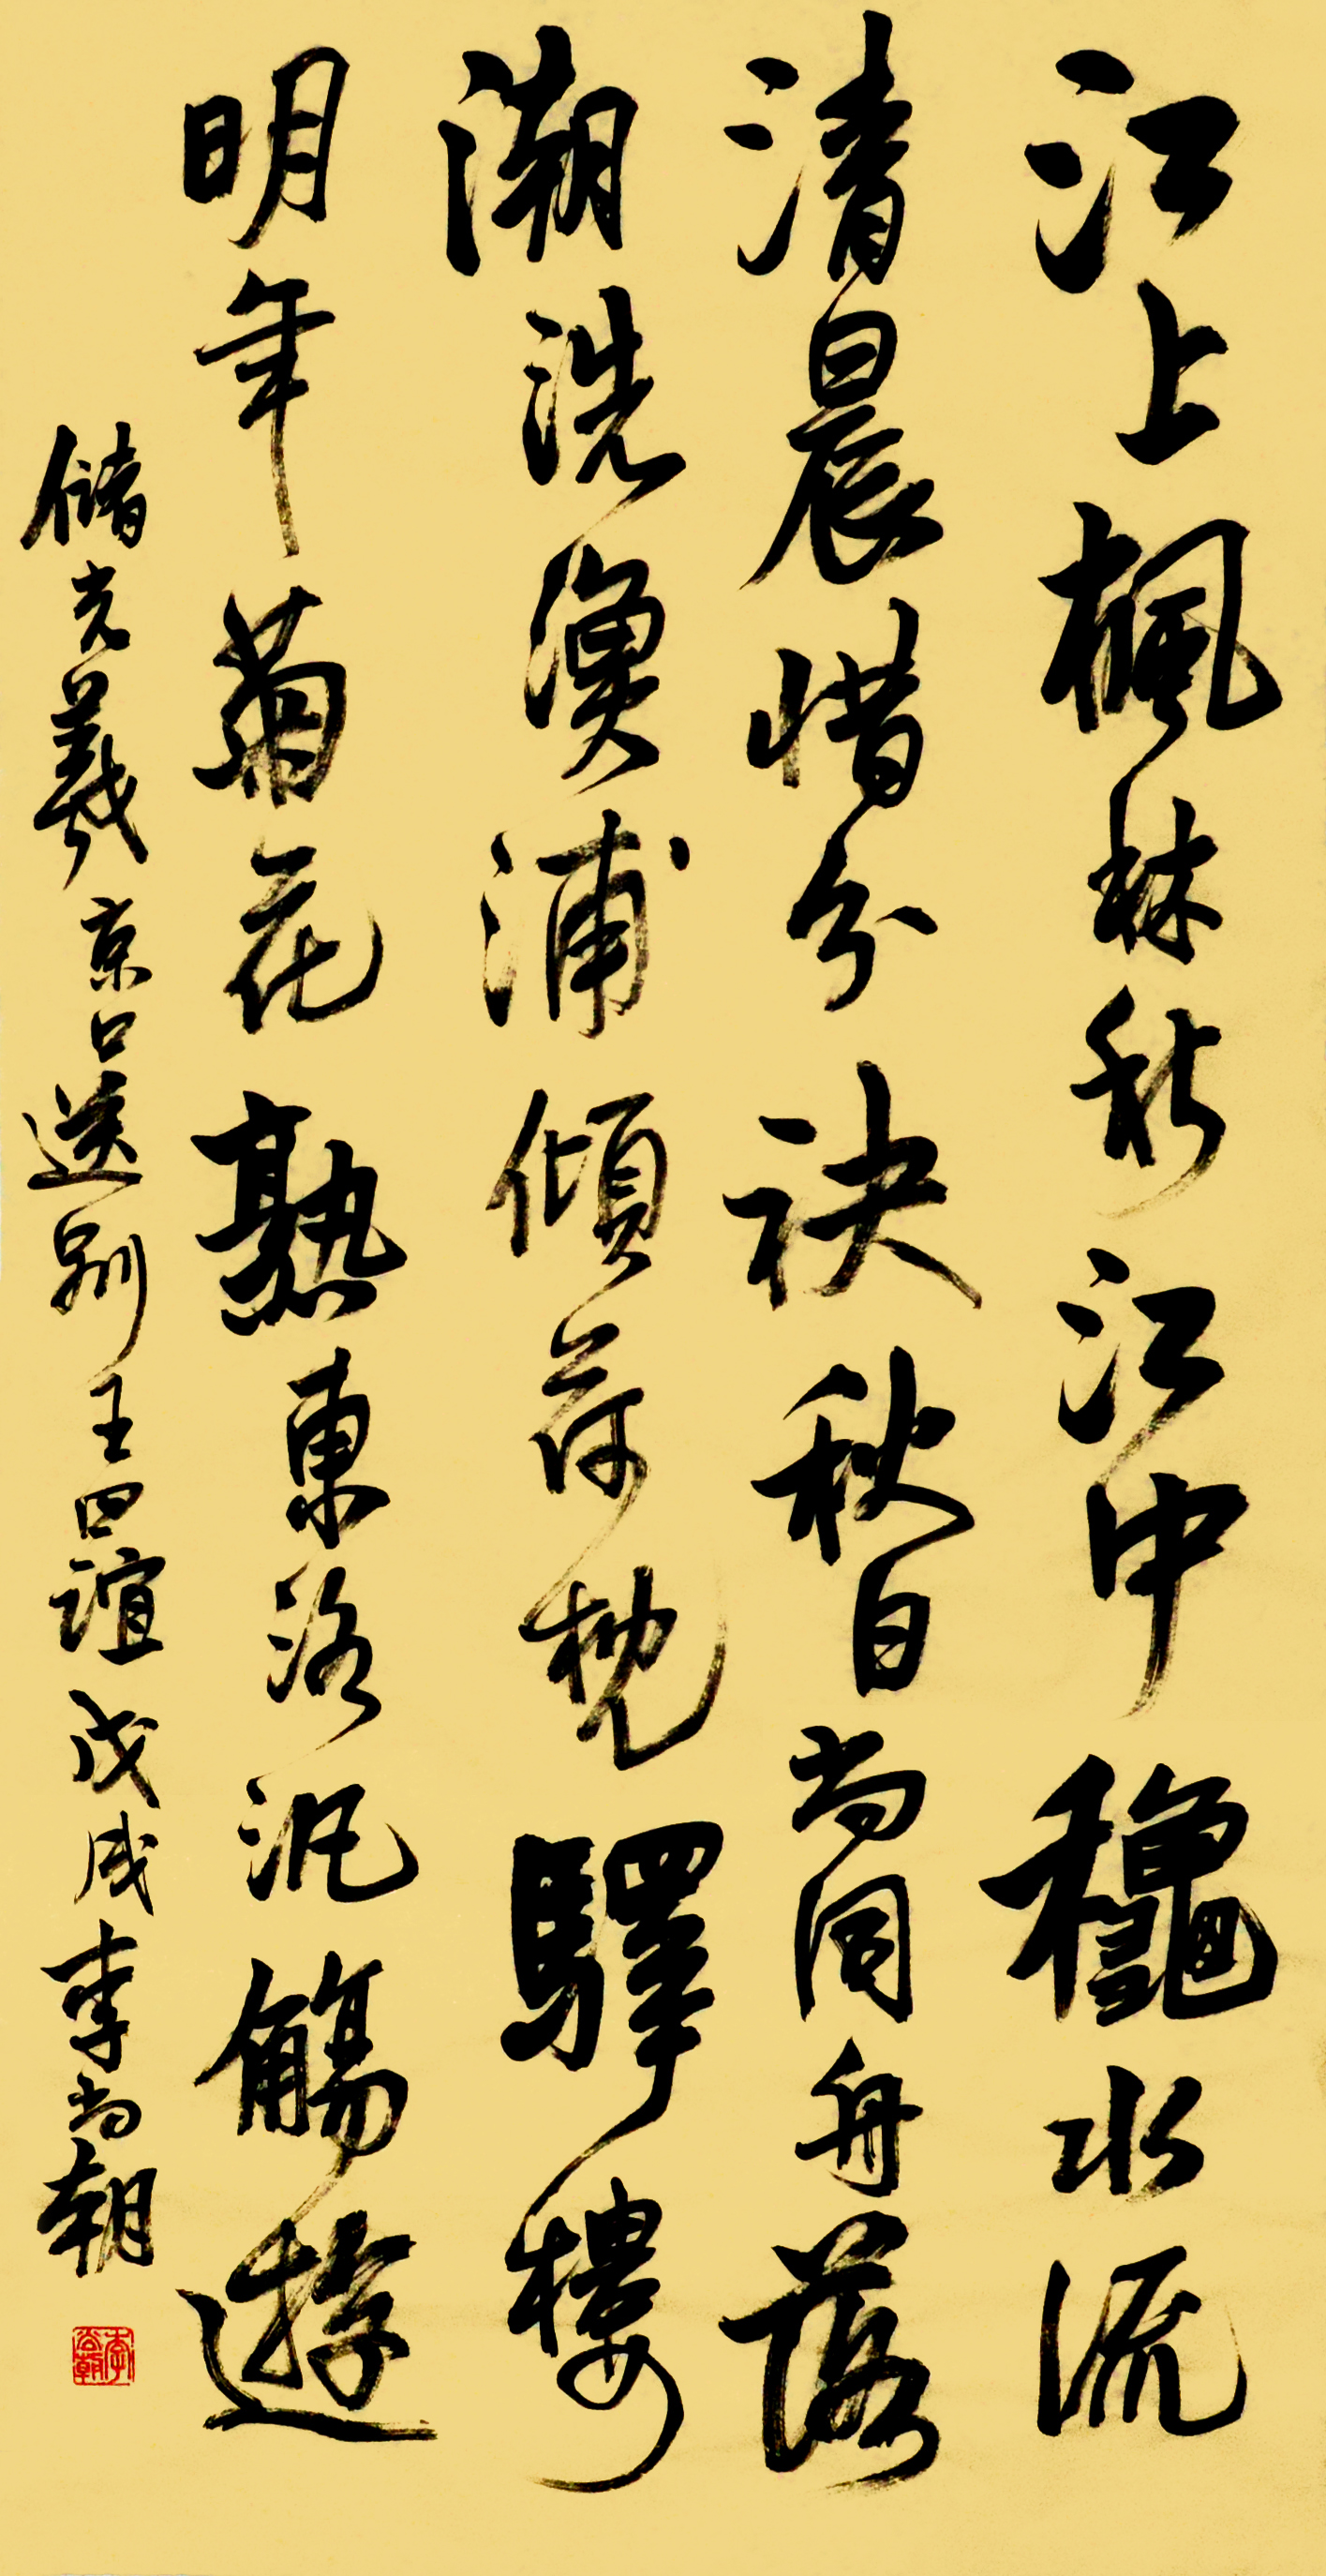 江上楓林秋江中龝水流
清晨惜分袂秋日尚同舟落
潮洗漁浦傾荷枕驛樓
明年菊花熟東洛汎觴遊
儲光羲京口送別王四誼戊戌李尚朝